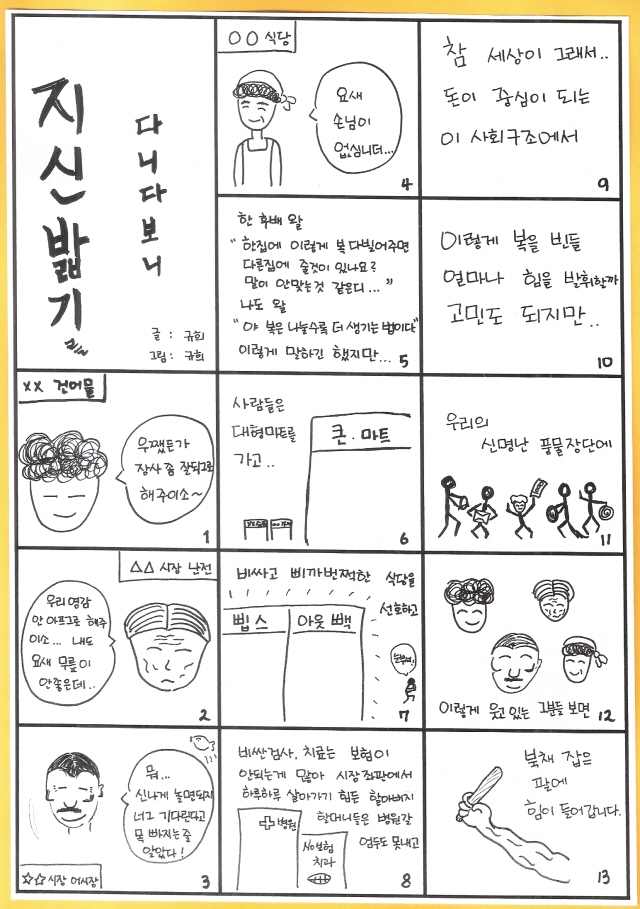 지신밟기
다니다보니
글 : 규희
그림 : 규희
XX 건어물
우쨌든가
장사 좀 잘되그로
해주이소~
1
△△ 시장 난전
우리 영감
안 아프그로 해주
이소... 내도
요새 무릎이
안좋은데..
2
뭐...
신나게 놀면되지
너그 기다린다고
목 빠지는줄
알았다!
3
☆☆시장 어시장
○○ 식당
요새
손님이
없심니더...
4
한 후배 왈
"한집에 이렇게 복 다빌어주면
다른집에 줄것이 있나요?
말이 안맞는것 같은디..."
나도 왈
"야 복은 나눌수록 더 생기는 법이다"
이렇게 말하긴 했지만...
5
사람들은
대형마트를
가고..
큰.마트
6
비싸고 삐까번쩍한 식당을
선호하고
삡스
아웃빽
눈부셔!
7
비싼검사, 치료는 보험이
안되는게 많아 시장좌판에서
하루하루 살아가기 힘든 할아버지
할머니들은 병원갈
엄두도 못내고
병원
No보험
치과
8
참 세상이 그래서..
돈이 중심이 되는
이 사회구조에서
9
이렇게 복을 빈들
얼마나 힘을 발휘할까
고민도 되지만..
10
우리의
신명난 풍물장단에
11
이렇게 웃고 있는 그분들 보면
12
북채 잡은
팔에
힘이 들어갑니다.
13